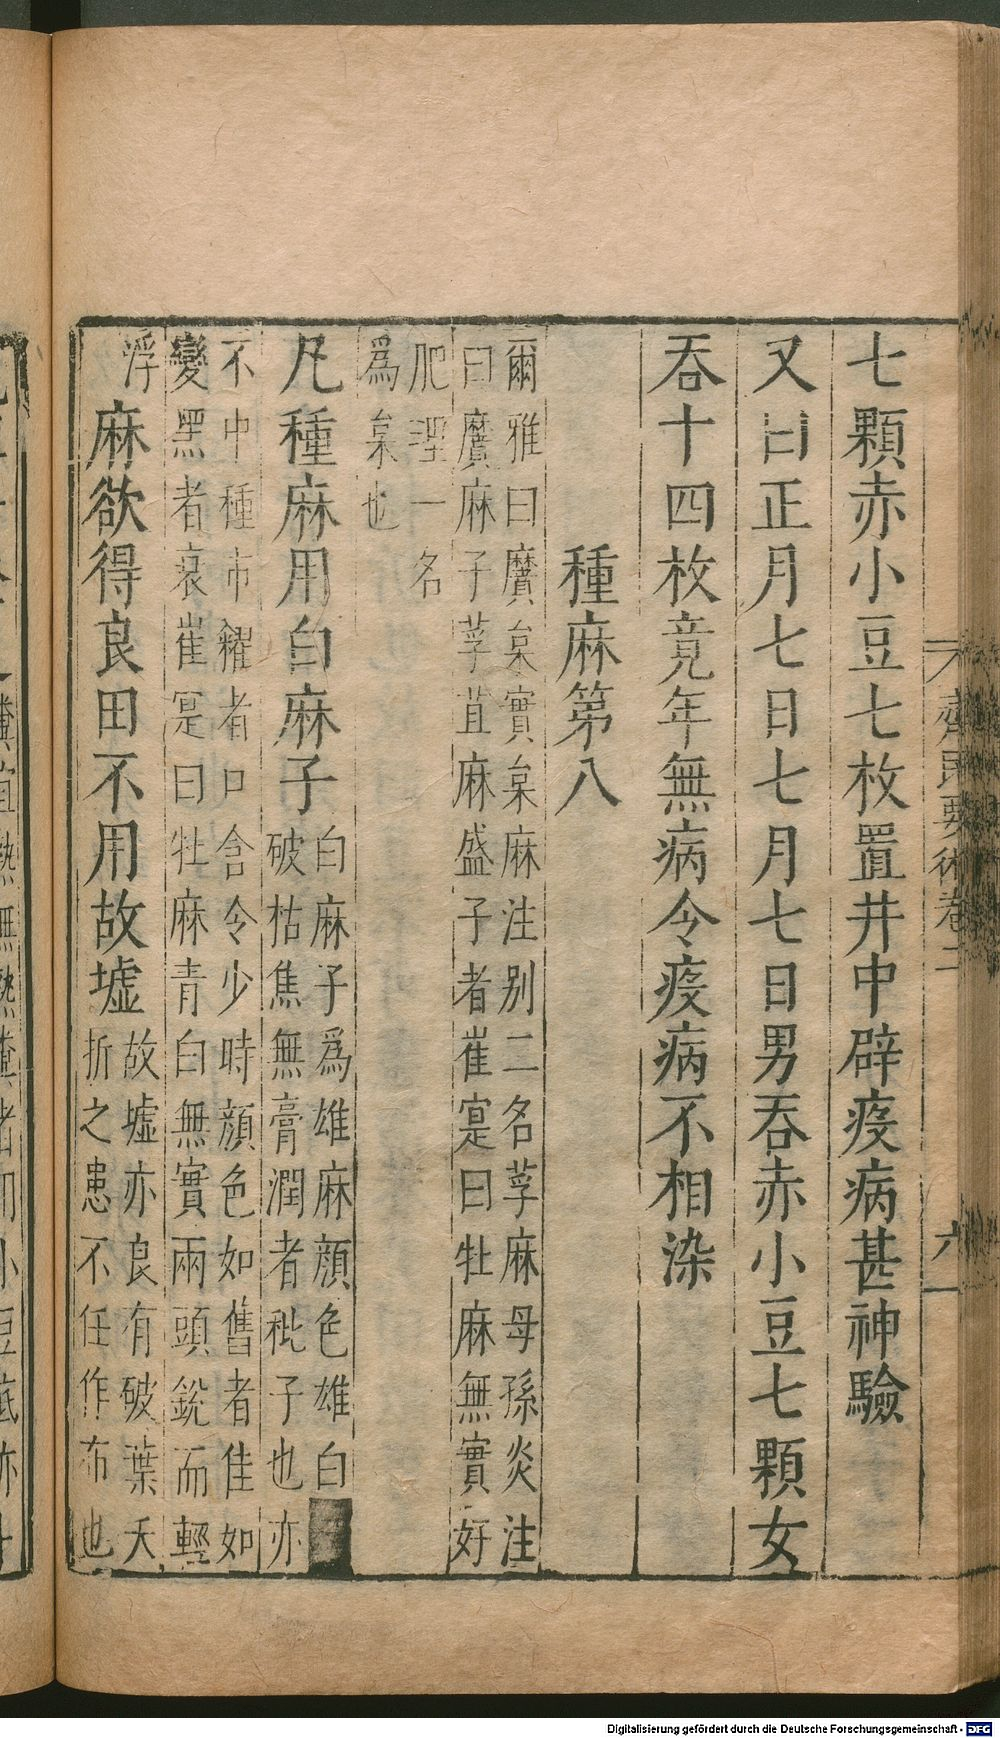 七顆赤小豆七枚置井中辟疫病甚神驗
又曰正月七日七月七日男吞赤小豆七顆女
吞十四枚竟年無病令疫病不相染
種麻第八
爾雅曰黂枲實枲麻注别二名莩麻母孫炎注
曰黂麻子莩苴麻盛子者崔寔曰牡麻無實好
肥理一名
為枲也
凡種麻用白麻子
白麻子爲雄麻顔色雄白
破枯焦無膏潤者秕子也亦
不中種市糴者口含令少時顔色如舊者佳如
變黑者裛崔寔曰牡麻青白無實兩頭銳而輕
浮
麻欲得良田不用故墟
故墟亦良有破葉夭
折之患不任作布也
齊民要術卷二
六
Digitalisierung gefördert durch die Deutsche Forschungsgemeinschaft - DFG